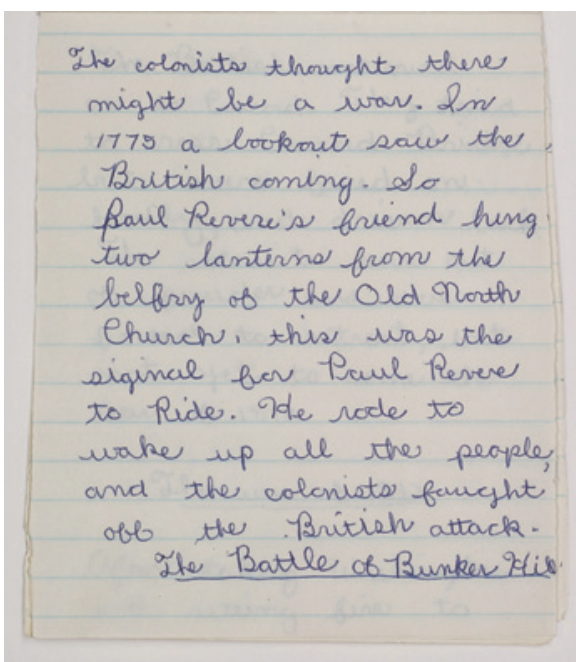 The colonists thought there
might be a war. In
1775 a lookout saw the
British coming. So
Paul Revere's friend hung
two lanterns from the
belfry of the Old North
Church, this was the
siginal for Paul Revere
to Ride. He rode to
wake up all the people,
and the colonists faught
off the British attack.
The Battle of Bunker Hill.